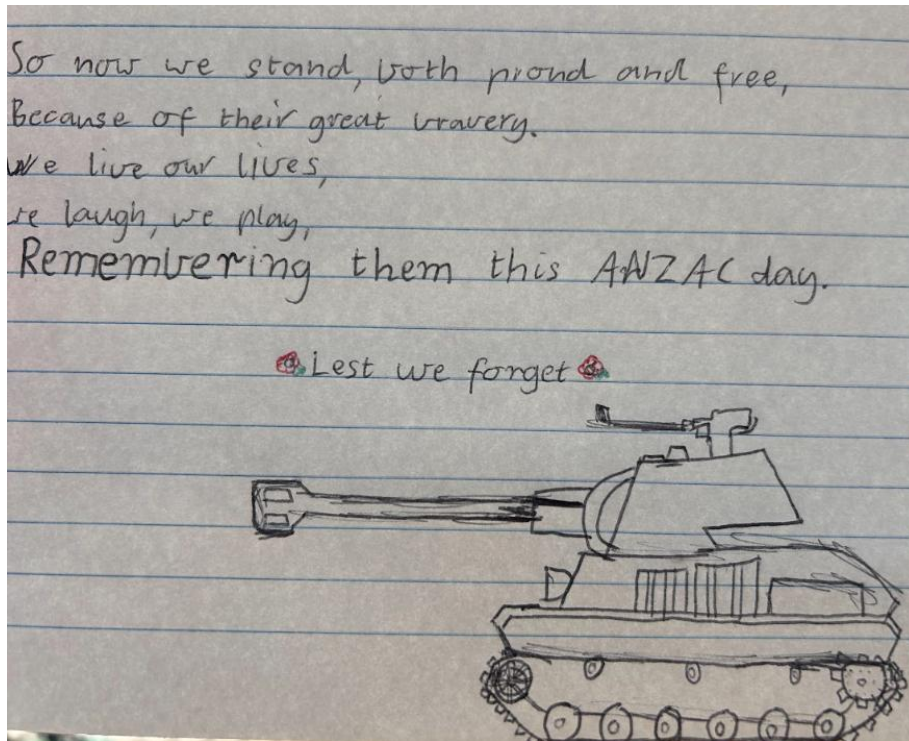 So now we stand, both proud and free,
Because of their great bravery.
We live our lives,
we laugh, we play,
Remembering them this ANZAC day.
Lest we forget